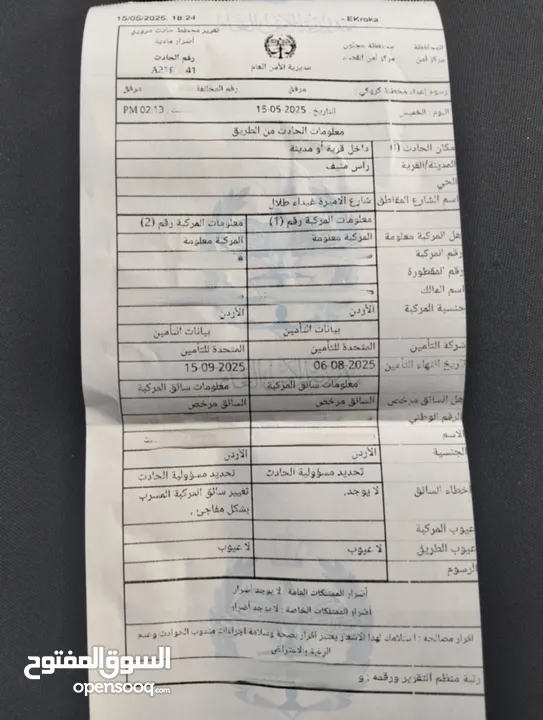 15/05/2025, 18:24
EKroka -
تقرير مخطط حادث مروري
أضرار مادية
رقم الحادث
41
مديرية الأمن العام
المحافظة محافظة عجلون
مركز أمن
رسوم إعداد مخطط كروكي : مرفق رقم المخالفة مرفق
اليوم : الخميس التاريخ : 2025-05-15 02:13 PM
معلومات الحادث من الطريق
مكان الحادث داخل قرية أو مدينة
المدينة/القرية راس منيف
الحي
اسم الشارع المقاطع شارع الاميرة غيداء طلال
معلومات المركبة رقم (1) معلومات المركبة رقم (2)
هل المركبة معلومة المركبة معلومة المركبة معلومة
رقم المركبة
رقم المقطورة
اسم المالك
جنسية المركبة الأردن الأردن
بيانات التأمين بيانات التأمين
شركة التأمين المتحدة للتأمين المتحدة للتأمين
تاريخ انتهاء التأمين 2025-08-06 2025-09-15
معلومات سائق المركبة معلومات سائق المركبة
هل السائق مرخص السائق مرخص السائق مرخص
الرقم الوطني
الاسم
الجنسية الأردن الأردن
تحديد مسؤولية الحادث تحديد مسؤولية الحادث
اخطاء السائق لا يوجد, تغيير سائق المركبة المسرب
بشكل مفاجئ ,
عيوب المركبة
عيوب الطريق لا عيوب لا عيوب
الرسوم
أضرار الممتلكات العامة : لا يوجد أضرار
أضرار الممتلكات الخاصة : لا يوجد أضرار
اقرار مصالحة : استلامك لهذا الاشعار يعتبر اقرار بصحة وسلامة اجراءات مندوب الحوادث وعدم
الرغبة بالاعتراض
رتبة منظم التقرير ورقمه : و
السوق المفتوح
opensooq.com